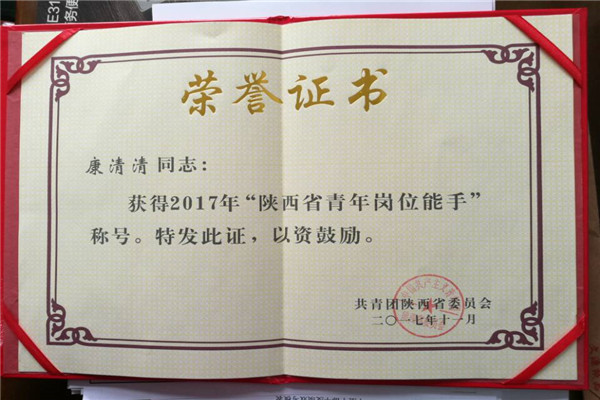 荣誉证书
康清清同志：
获得2017年“陕西省青年岗位能手”
称号。特发此证，以资鼓励。
共青团陕西省委员会
二〇一七年十一月
E31
务便